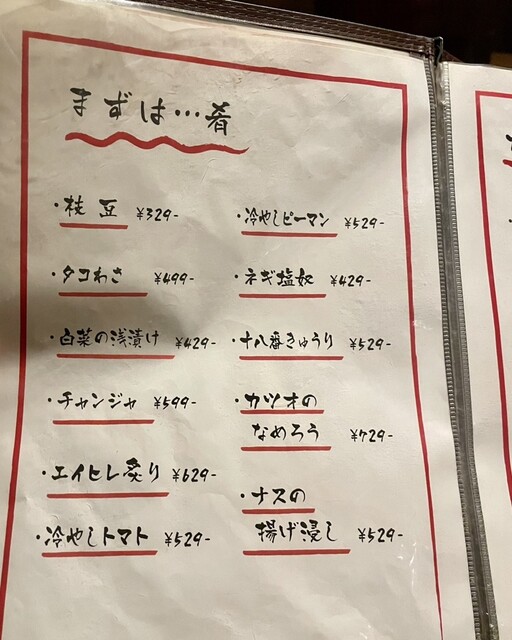 まずは…肴
・枝豆 ¥329-
・タコわさ ¥499-
・白菜の浅漬け ¥429-
・チャンジャ ¥599-
・エイヒレ炙り ¥629-
・冷やしトマト ¥529-
・冷やしピーマン ¥529-
・ネギ塩奴 ¥429-
・十八番きゅうり ¥529-
・カツオの
なめろう ¥729-
・ナスの
揚げ浸し ¥529-